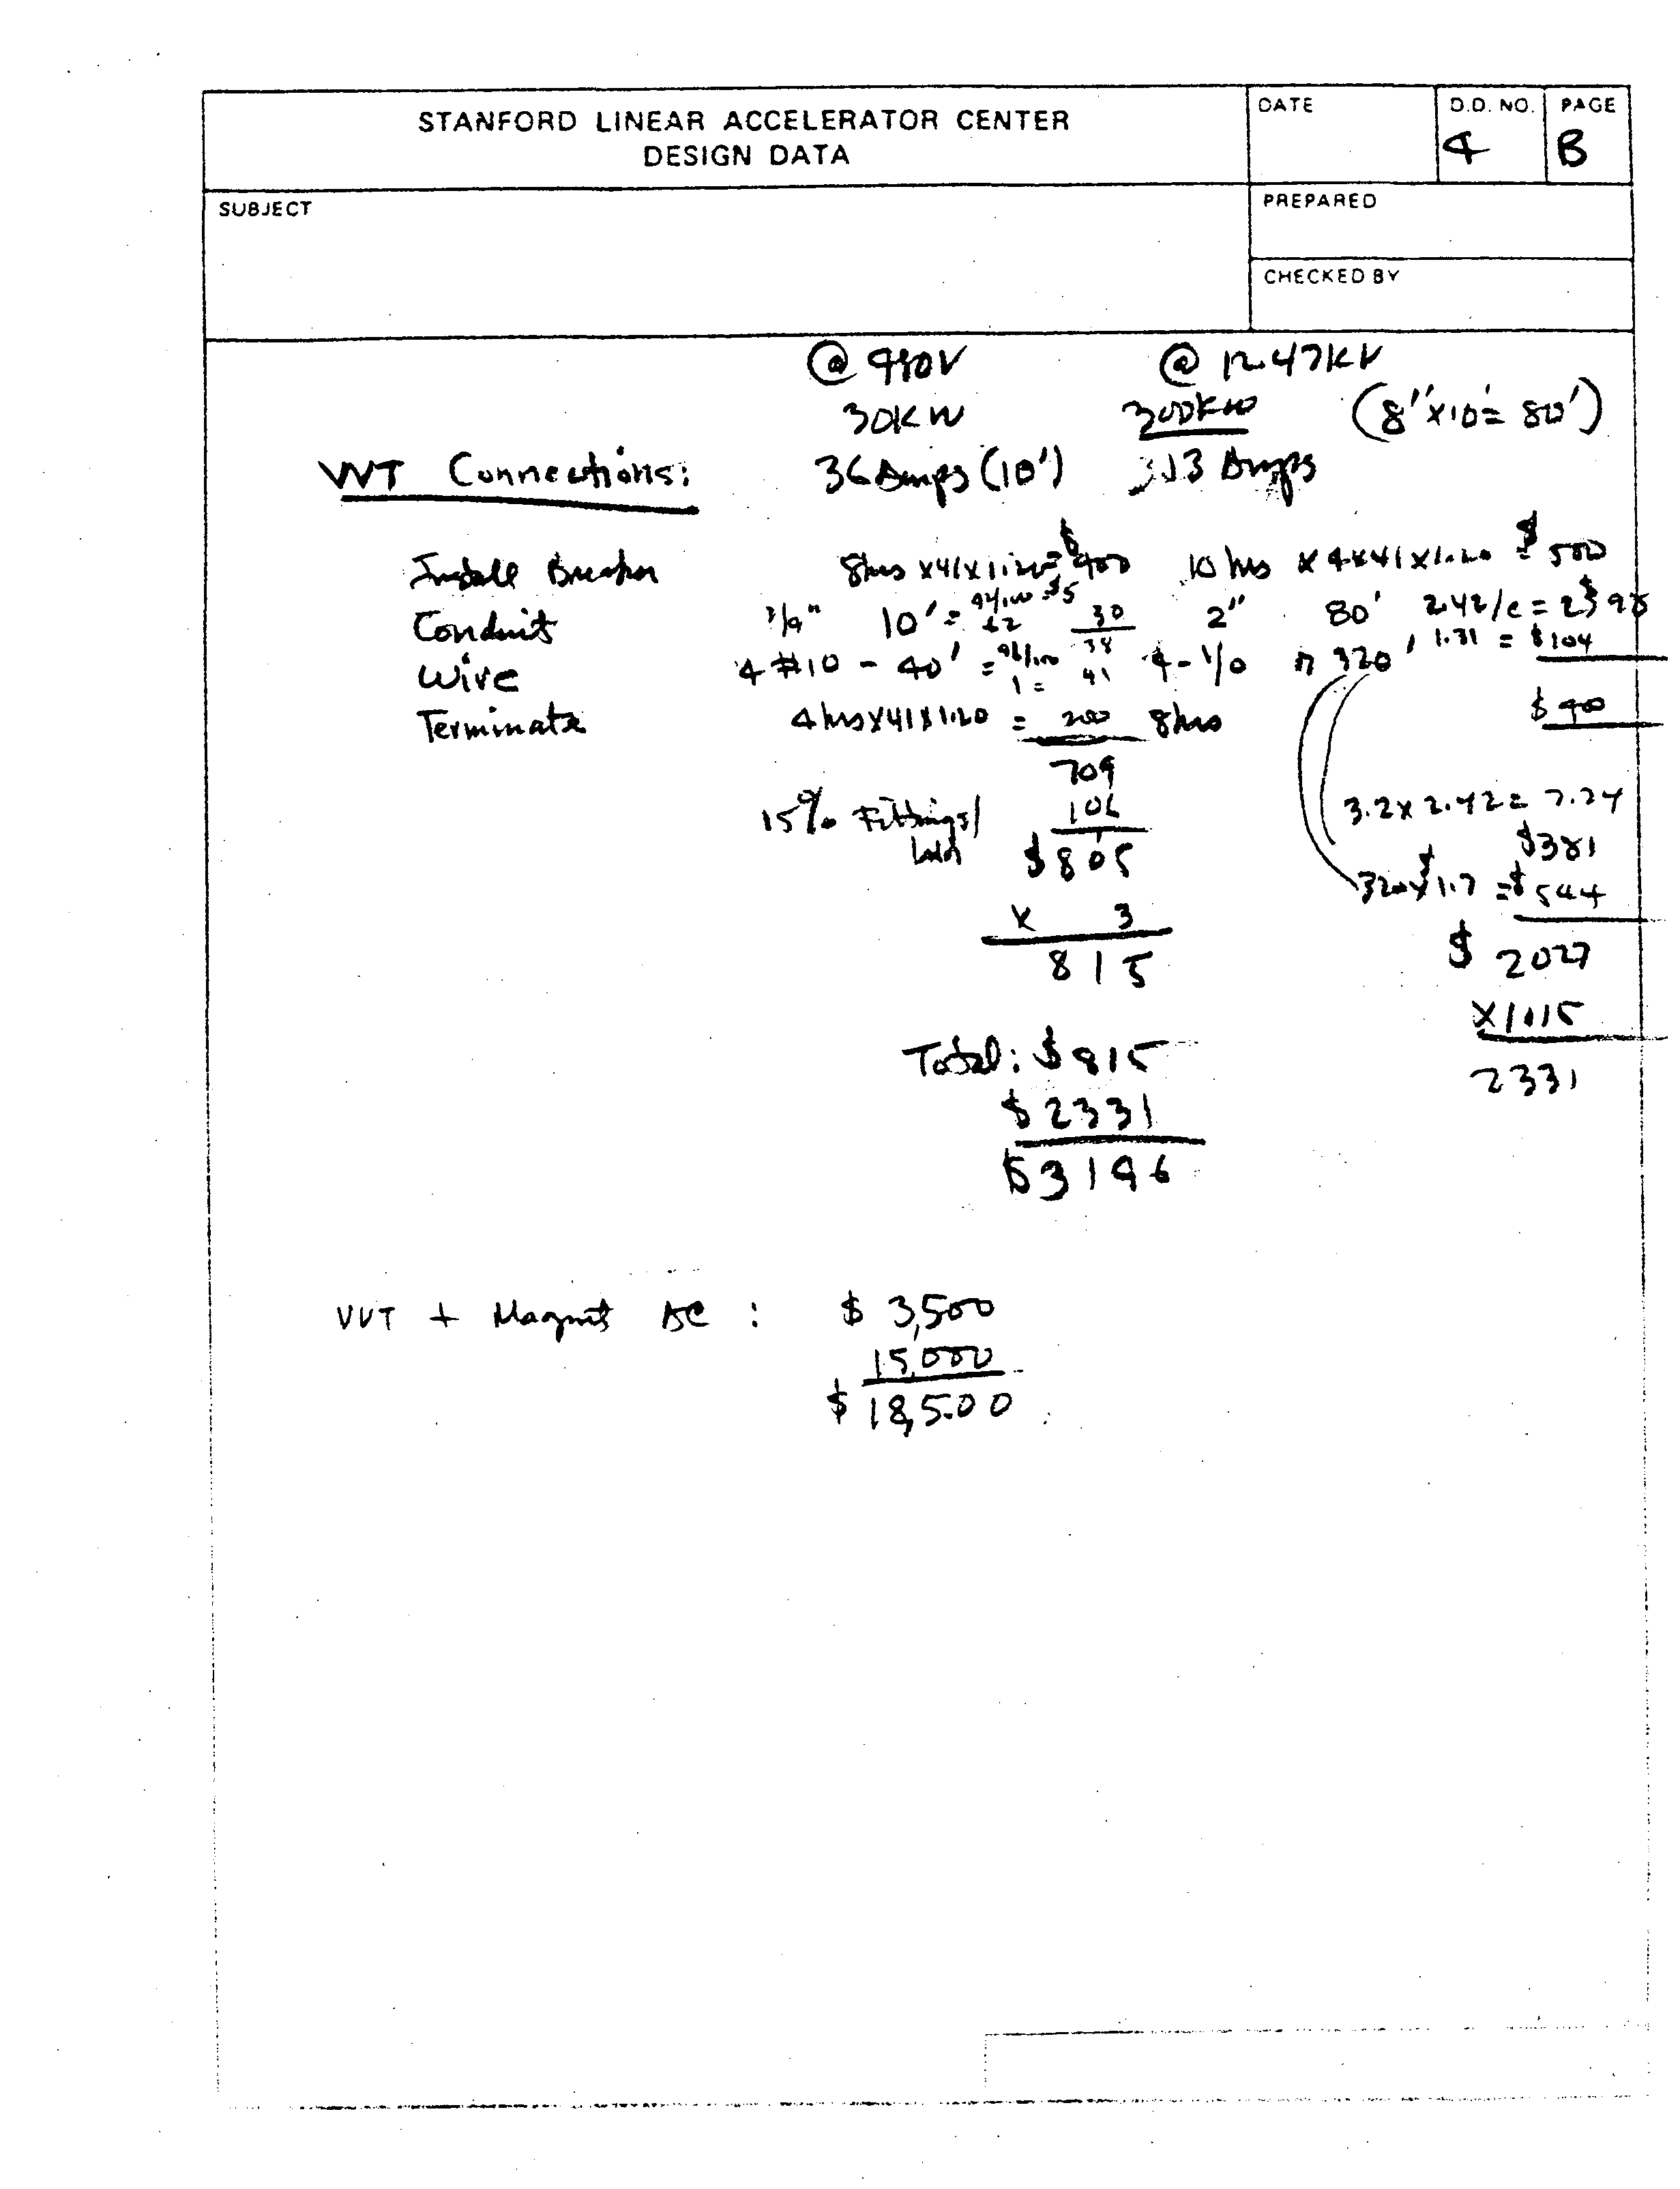 STANFORD LINEAR ACCELERATOR CENTER
DESIGN DATA
DATE
D.D. NO.
4
PAGE
B
SUBJECT
PREPARED
CHECKED BY
@ 480V @ 12.47KV
30KW 300KW (8"x10'= 80')
VVT Connections: 36 Amps (10') 313 Amps
Install Breaker 8hrs x41x1.20= $400 10 hrs x 4x41x1.20 = $500
Conduit 3/4" 10' = 30 2" 80' 2.42/c =
Wire 4 #10 - 40' = 4 - 1/0 320' 1.31 = $104
Terminate 4hrs x41x1.20 = 200 8hrs $400
709
15% Fittings/ 106
$805
x 3
815
3.2 x 2.42 = 7.74
$381
320x$1.7 =$544
$ 2027
x1.15
2331
Total: $815
$2331
$3146
VVT + Magnet AC : $ 3,500
15,000
$ 18,500